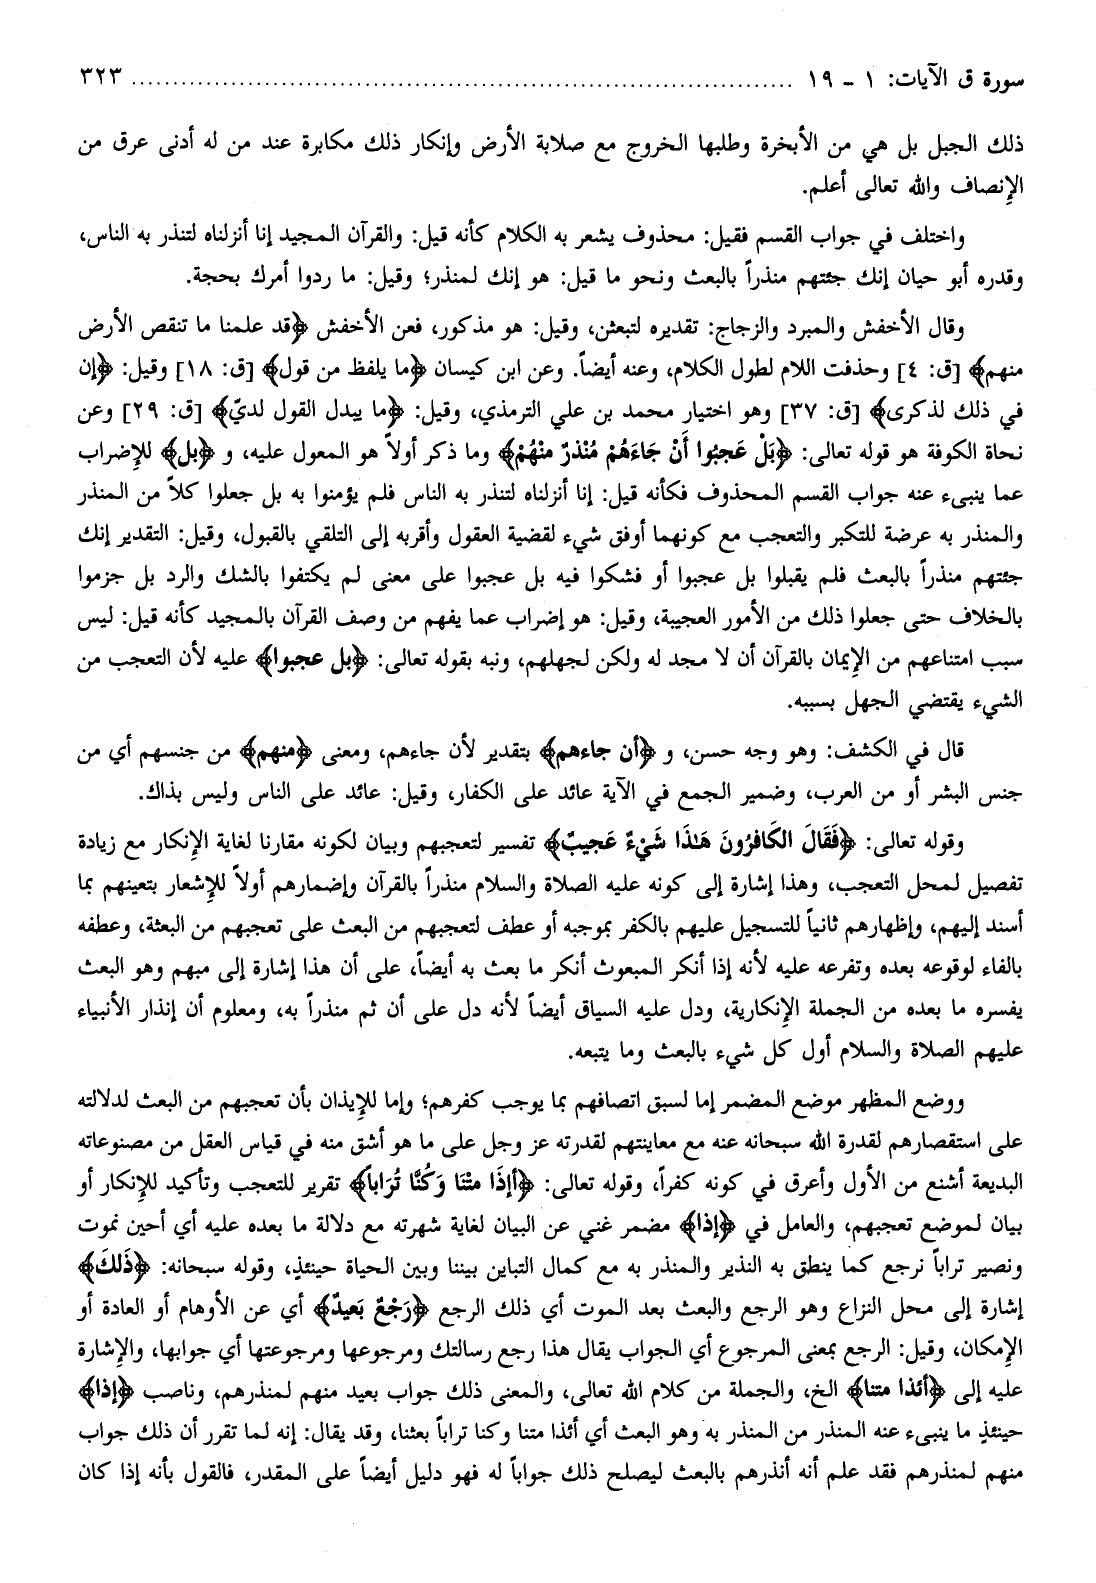 سورة ق الآيات: ١ - ١٩ ................................................................................ ٣٢٣
ذلك الجبل بل هي من الأبخرة وطلبها الخروج مع صلابة الأرض وإنكار ذلك مكابرة عند من له أدنى عرق من
الإنصاف والله تعالى أعلم.
واختلف في جواب القسم فقيل: محذوف يشعر به الكلام كأنه قيل: والقرآن المجيد إنا أنزلناه لتنذر به الناس،
وقدره أبو حيان إنك جئتهم منذراً بالبعث ونحو ما قيل: هو إنك لمنذر؛ وقيل: ما ردوا أمرك بحجة.
وقال الأخفش والمبرد والزجاج: تقديره لتبعثن، وقيل: هو مذكور، فعن الأخفش ﴿قد علمنا ما تنقص الأرض
منهم﴾ [ق: ٤] وحذفت اللام لطول الكلام، وعنه أيضاً. وعن ابن كيسان ﴿ما يلفظ من قول﴾ [ق: ١٨] وقيل: ﴿إن
في ذلك لذكرى﴾ [ق: ٣٧] وهو اختيار محمد بن علي الترمذي، وقيل: ﴿ما يبدل القول لديّ﴾ [ق: ٢٩] وعن
نحاة الكوفة هو قوله تعالى: ﴿بَلْ عَجِبُوا أَنْ جَاءَهُمْ مُنْذِرٌ مِنْهُمْ﴾ وما ذكر أولاً هو المعول عليه، و ﴿بل﴾ للإضراب
عما ينبىء عنه جواب القسم المحذوف فكأنه قيل: إنا أنزلناه لتنذر به الناس فلم يؤمنوا به بل جعلوا كلاً من المنذر
والمنذر به عرضة للتكبر والتعجب مع كونهما أوفق شيء لقضية العقول وأقربه إلى التلقي بالقبول، وقيل: التقدير إنك
جئتهم منذراً بالبعث فلم يقبلوا بل عجبوا أو فشكوا فيه بل عجبوا على معنى لم يكتفوا بالشك والرد بل جزموا
بالخلاف حتى جعلوا ذلك من الأمور العجيبة، وقيل: هو إضراب عما يفهم من وصف القرآن بالمجيد كأنه قيل: ليس
سبب امتناعهم من الإيمان بالقرآن أن لا مجد له ولكن لجهلهم، ونبه بقوله تعالى: ﴿بل عجبوا﴾ عليه لأن التعجب من
الشيء يقتضي الجهل بسببه.
قال في الكشف: وهو وجه حسن، و ﴿أن جاءهم﴾ بتقدير لأن جاءهم، ومعنى ﴿منهم﴾ من جنسهم أي من
جنس البشر أو من العرب، وضمير الجمع في الآية عائد على الكفار، وقيل: عائد على الناس وليس بذاك.
وقوله تعالى: ﴿فَقَالَ الكَافِرُونَ هَٰذَا شَيْءٌ عَجِيبٌ﴾ تفسير لتعجبهم وبيان لكونه مقارنا لغاية الإنكار مع زيادة
تفصيل لمحل التعجب، وهذا إشارة إلى كونه عليه الصلاة والسلام منذراً بالقرآن وإضمارهم أولاً للإشعار بتعينهم بما
أسند إليهم، وإظهارهم ثانياً للتسجيل عليهم بالكفر بموجبه أو عطف لتعجبهم من البعث على تعجبهم من البعثة، وعطفه
بالفاء لوقوعه بعده وتفرعه عليه لأنه إذا أنكر المبعوث أنكر ما بعث به أيضاً، على أن هذا إشارة إلى مبهم وهو البعث
يفسره ما بعده من الجملة الإنكارية، ودل عليه السياق أيضاً لأنه دل على أن ثم منذراً به، ومعلوم أن إنذار الأنبياء
عليهم الصلاة والسلام أول كل شيء بالبعث وما يتبعه.
ووضع المظهر موضع المضمر إما لسبق اتصافهم بما يوجب كفرهم؛ وإما للإيذان بأن تعجبهم من البعث لدلالته
على استقصارهم لقدرة الله سبحانه عنه مع معاينتهم لقدرته عز وجل على ما هو أشق منه في قياس العقل من مصنوعاته
البديعة أشنع من الأول وأعرق في كونه كفراً، وقوله تعالى: ﴿أإِذَا مِتْنَا وَكُنَّا تُرَاباً﴾ تقرير للتعجب وتأكيد للإنكار أو
بيان لموضع تعجبهم، والعامل في ﴿إذا﴾ مضمر غني عن البيان لغاية شهرته مع دلالة ما بعده عليه أي أحين نموت
ونصير تراباً نرجع كما ينطق به النذير والمنذر به مع كمال التباين بيننا وبين الحياة حينئذٍ، وقوله سبحانه: ﴿ذَلِكَ﴾
إشارة إلى محل النزاع وهو الرجع والبعث بعد الموت أي ذلك الرجع ﴿رَجْعٌ بَعيدٌ﴾ أي عن الأوهام أو العادة أو
الإمكان، وقيل: الرجع بمعنى المرجوع أي الجواب يقال هذا رجع رسالتك ومرجوعها ومرجوعتها أي جوابها، والإشارة
عليه إلى ﴿أئذا متنا﴾ الخ، والجملة من كلام الله تعالى، والمعنى ذلك جواب بعيد منهم لمنذرهم، وناصب ﴿إذا﴾
حينئذٍ ما ينبىء عنه المنذر من المنذر به وهو البعث أي أئذا متنا وكنا تراباً بعثنا، وقد يقال: إنه لما تقرر أن ذلك جواب
منهم لمنذرهم فقد علم أنه أنذرهم بالبعث ليصلح ذلك جواباً له فهو دليل أيضاً على المقدر، فالقول بأنه إذا كان